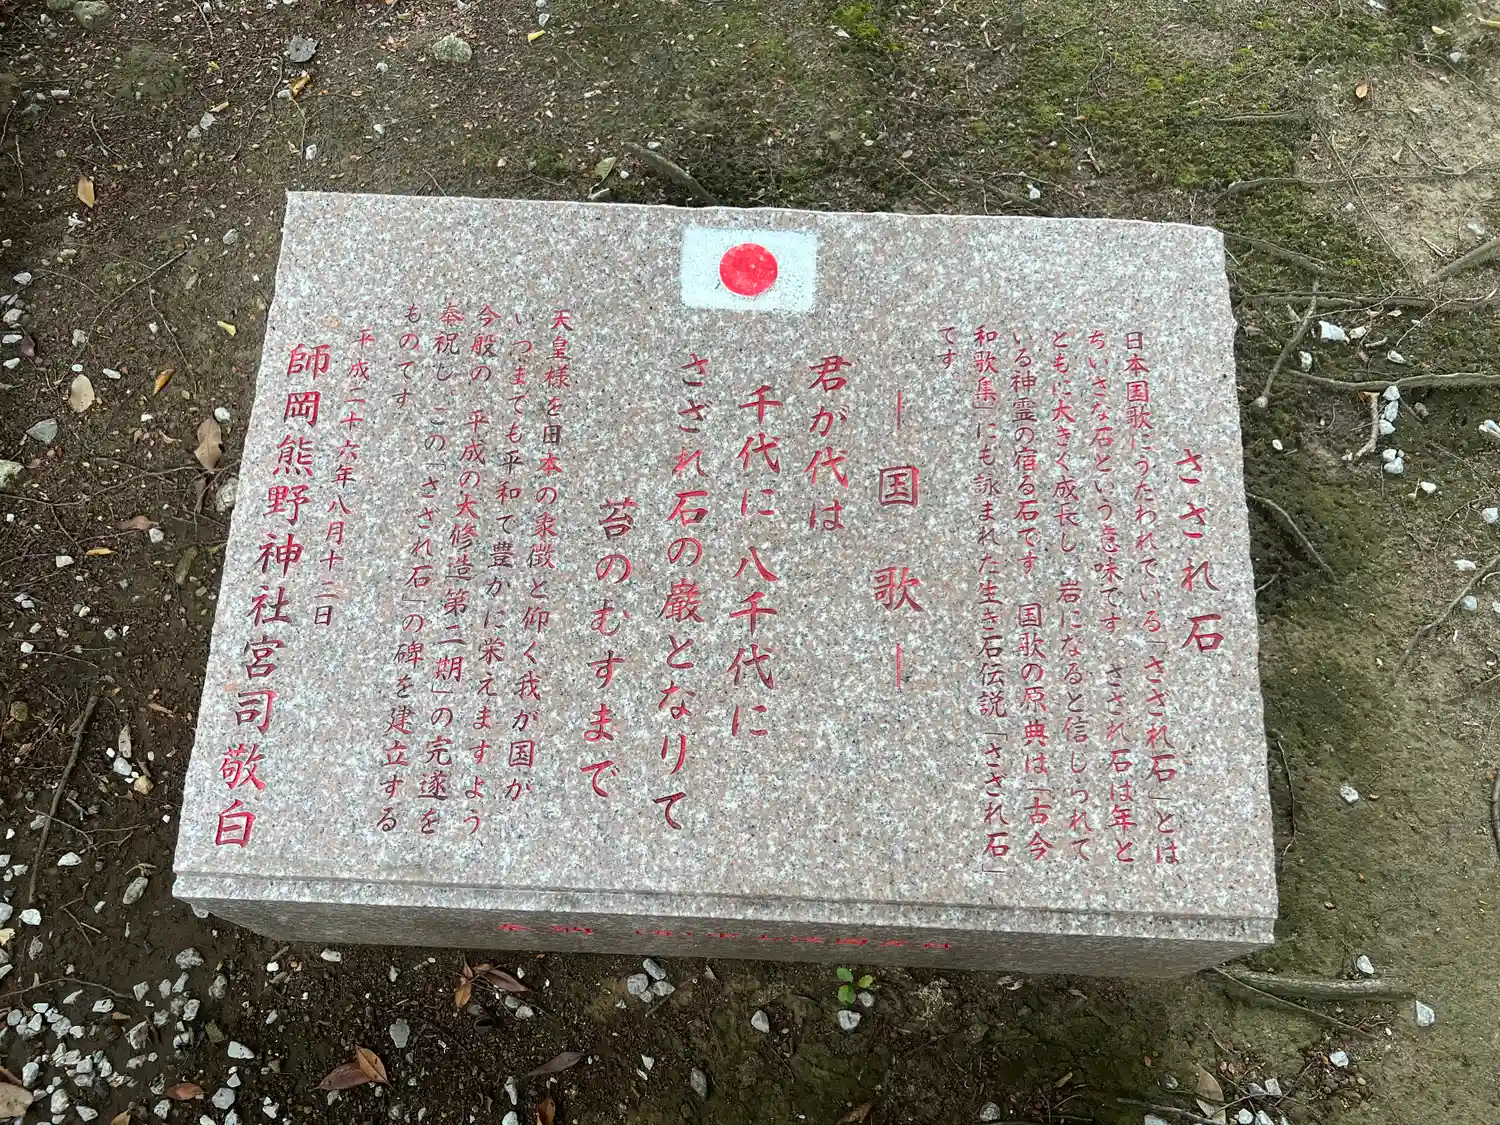 さざれ石
日本国歌にうたわれている「さざれ石」とは、
ちいさな石という意味です。さざれ石は年と
ともに大きく成長し 岩になると信じられて
いる神霊の宿る石です 国歌の原典は「古今
和歌集」にも詠まれた生き石伝説「さざれ石」
です。
―国歌―
君が代は
千代に 八千代に
さざれ石の巌となりて
苔のむすまで
天皇様を日本の象徴と仰く我が国が
いつまでも平和で豊かに栄えますよう、
今般の 平成の大修造第二期」の完遂を
奉祝し この「さざれ石」の碑を建立する
ものです
平成二十六年八月十二日
師岡熊野神社宮司 敬白